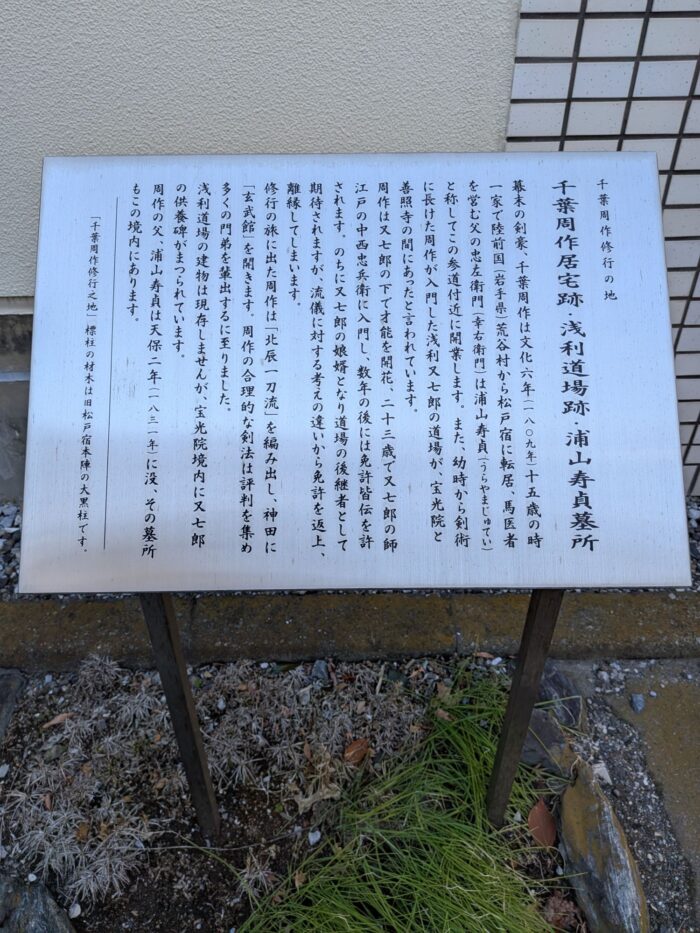 千葉周作修行の地
千葉周作居宅跡・浅利道場跡・浦山寿貞墓所
幕末の剣豪、千葉周作は文化六年(一八〇九年)十五歳の時
一家で陸前国(岩手県)荒谷村から松戸宿に転居。馬医者
を営む父の忠左衛門(幸右衛門)は浦山寿貞(うらやまじゅてい)
と称してこの参道付近に開業します。また、幼時から剣術
に長けた周作が入門した浅利又七郎の道場が、宝光院と
善照寺の間にあったと言われています。
周作は又七郎の下で才能を開花、二十三歳で又七郎の師
江戸の中西忠兵衛に入門し、数年の後には免許皆伝を許
されます。のちに又七郎の娘婿となり道場の後継者として
期待されますが、流儀に対する考えの違いから免許を返上、
離縁してしまいます。
修行の旅に出た周作は「北辰一刀流」を編み出し、神田に
「玄武館」を開きます。周作の合理的な剣法は評判を集め
多くの門弟を輩出するに至りました。
浅利道場の建物は現存しませんが、宝光院境内に又七郎
の供養碑がまつられています。
周作の父、浦山寿貞は天保二年(一八三一年)に没、その墓所
もこの境内にあります。
「千葉周作修行之地」標柱の材木は旧松戸宿本陣の大黒柱です。